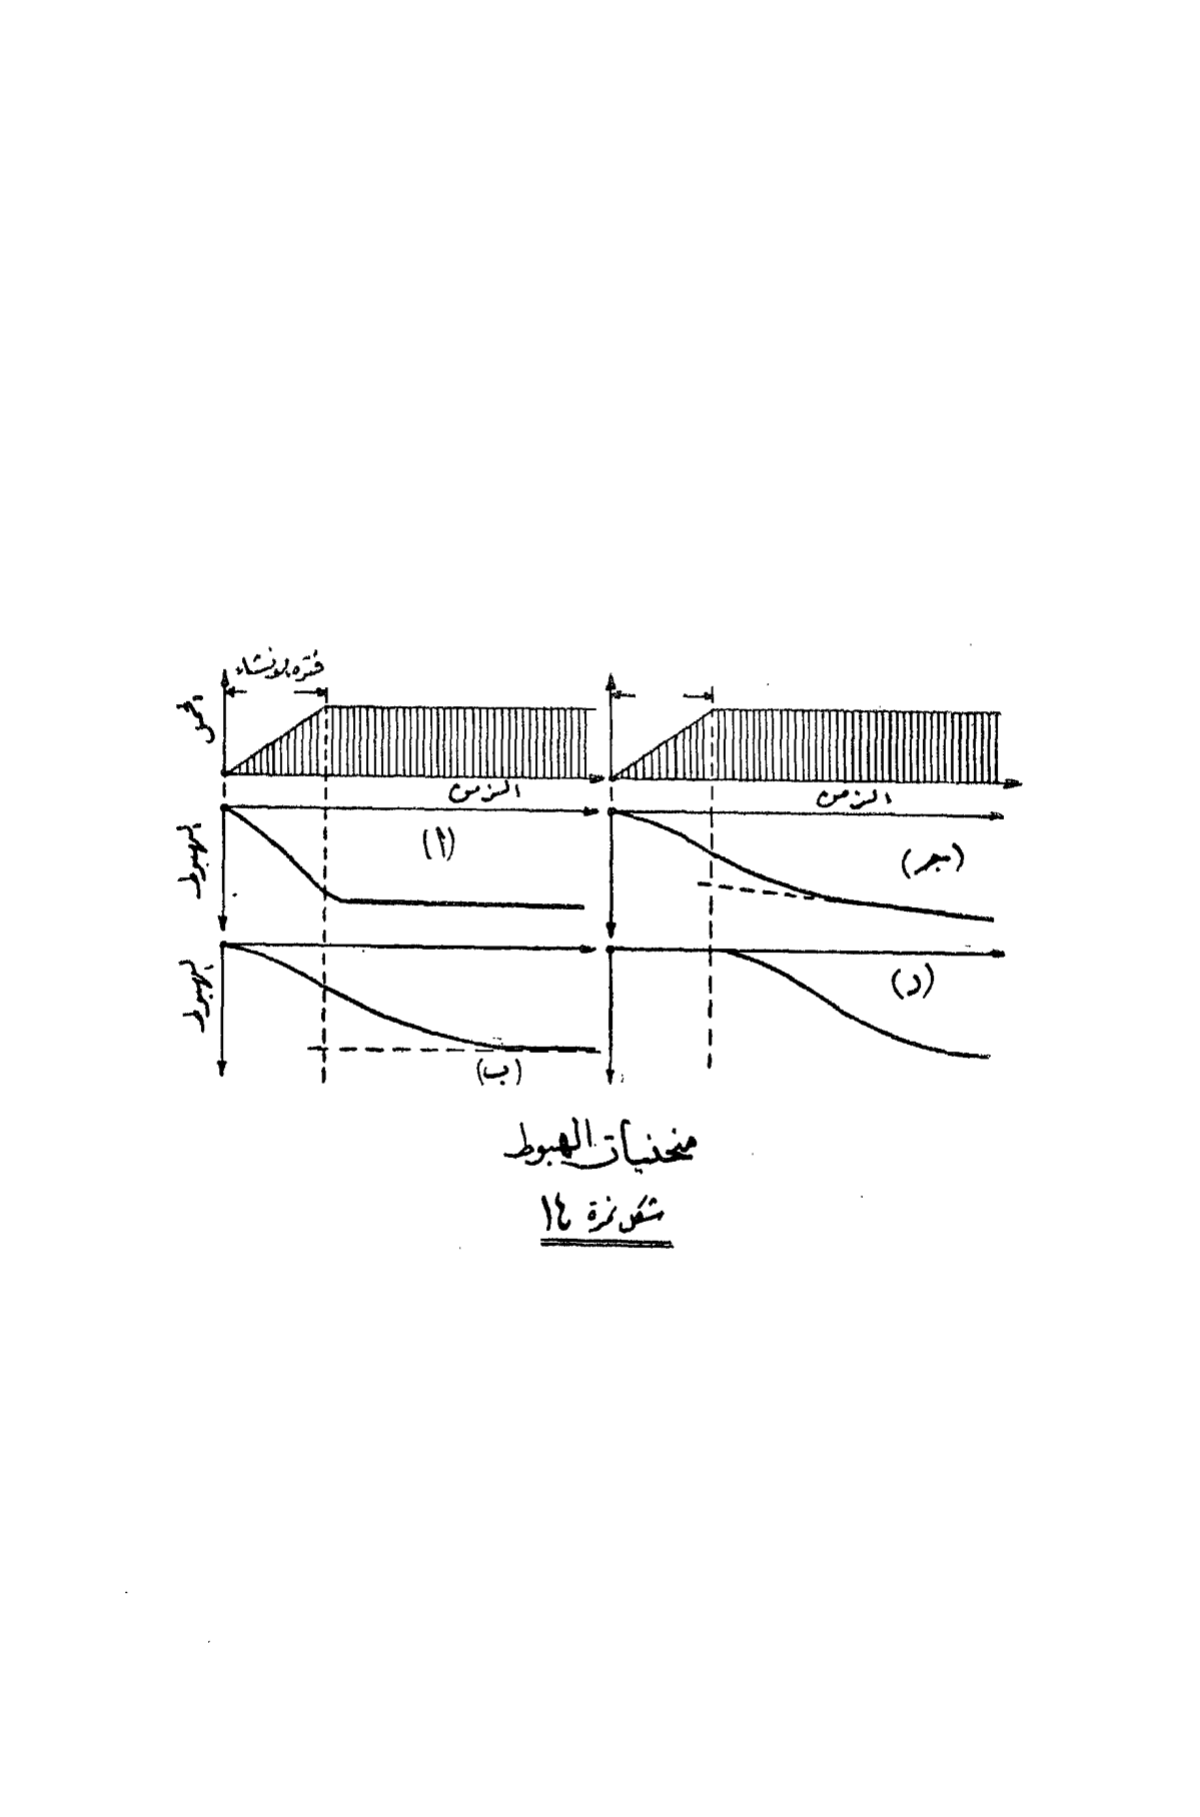 فترة الإنشاء
الحمل
الزمن
الزمن
الهبوط
(أ)
(جـ)
الهبوط
(ب)
(د)
منحنيات الهبوط
شكل نمرة ١٤